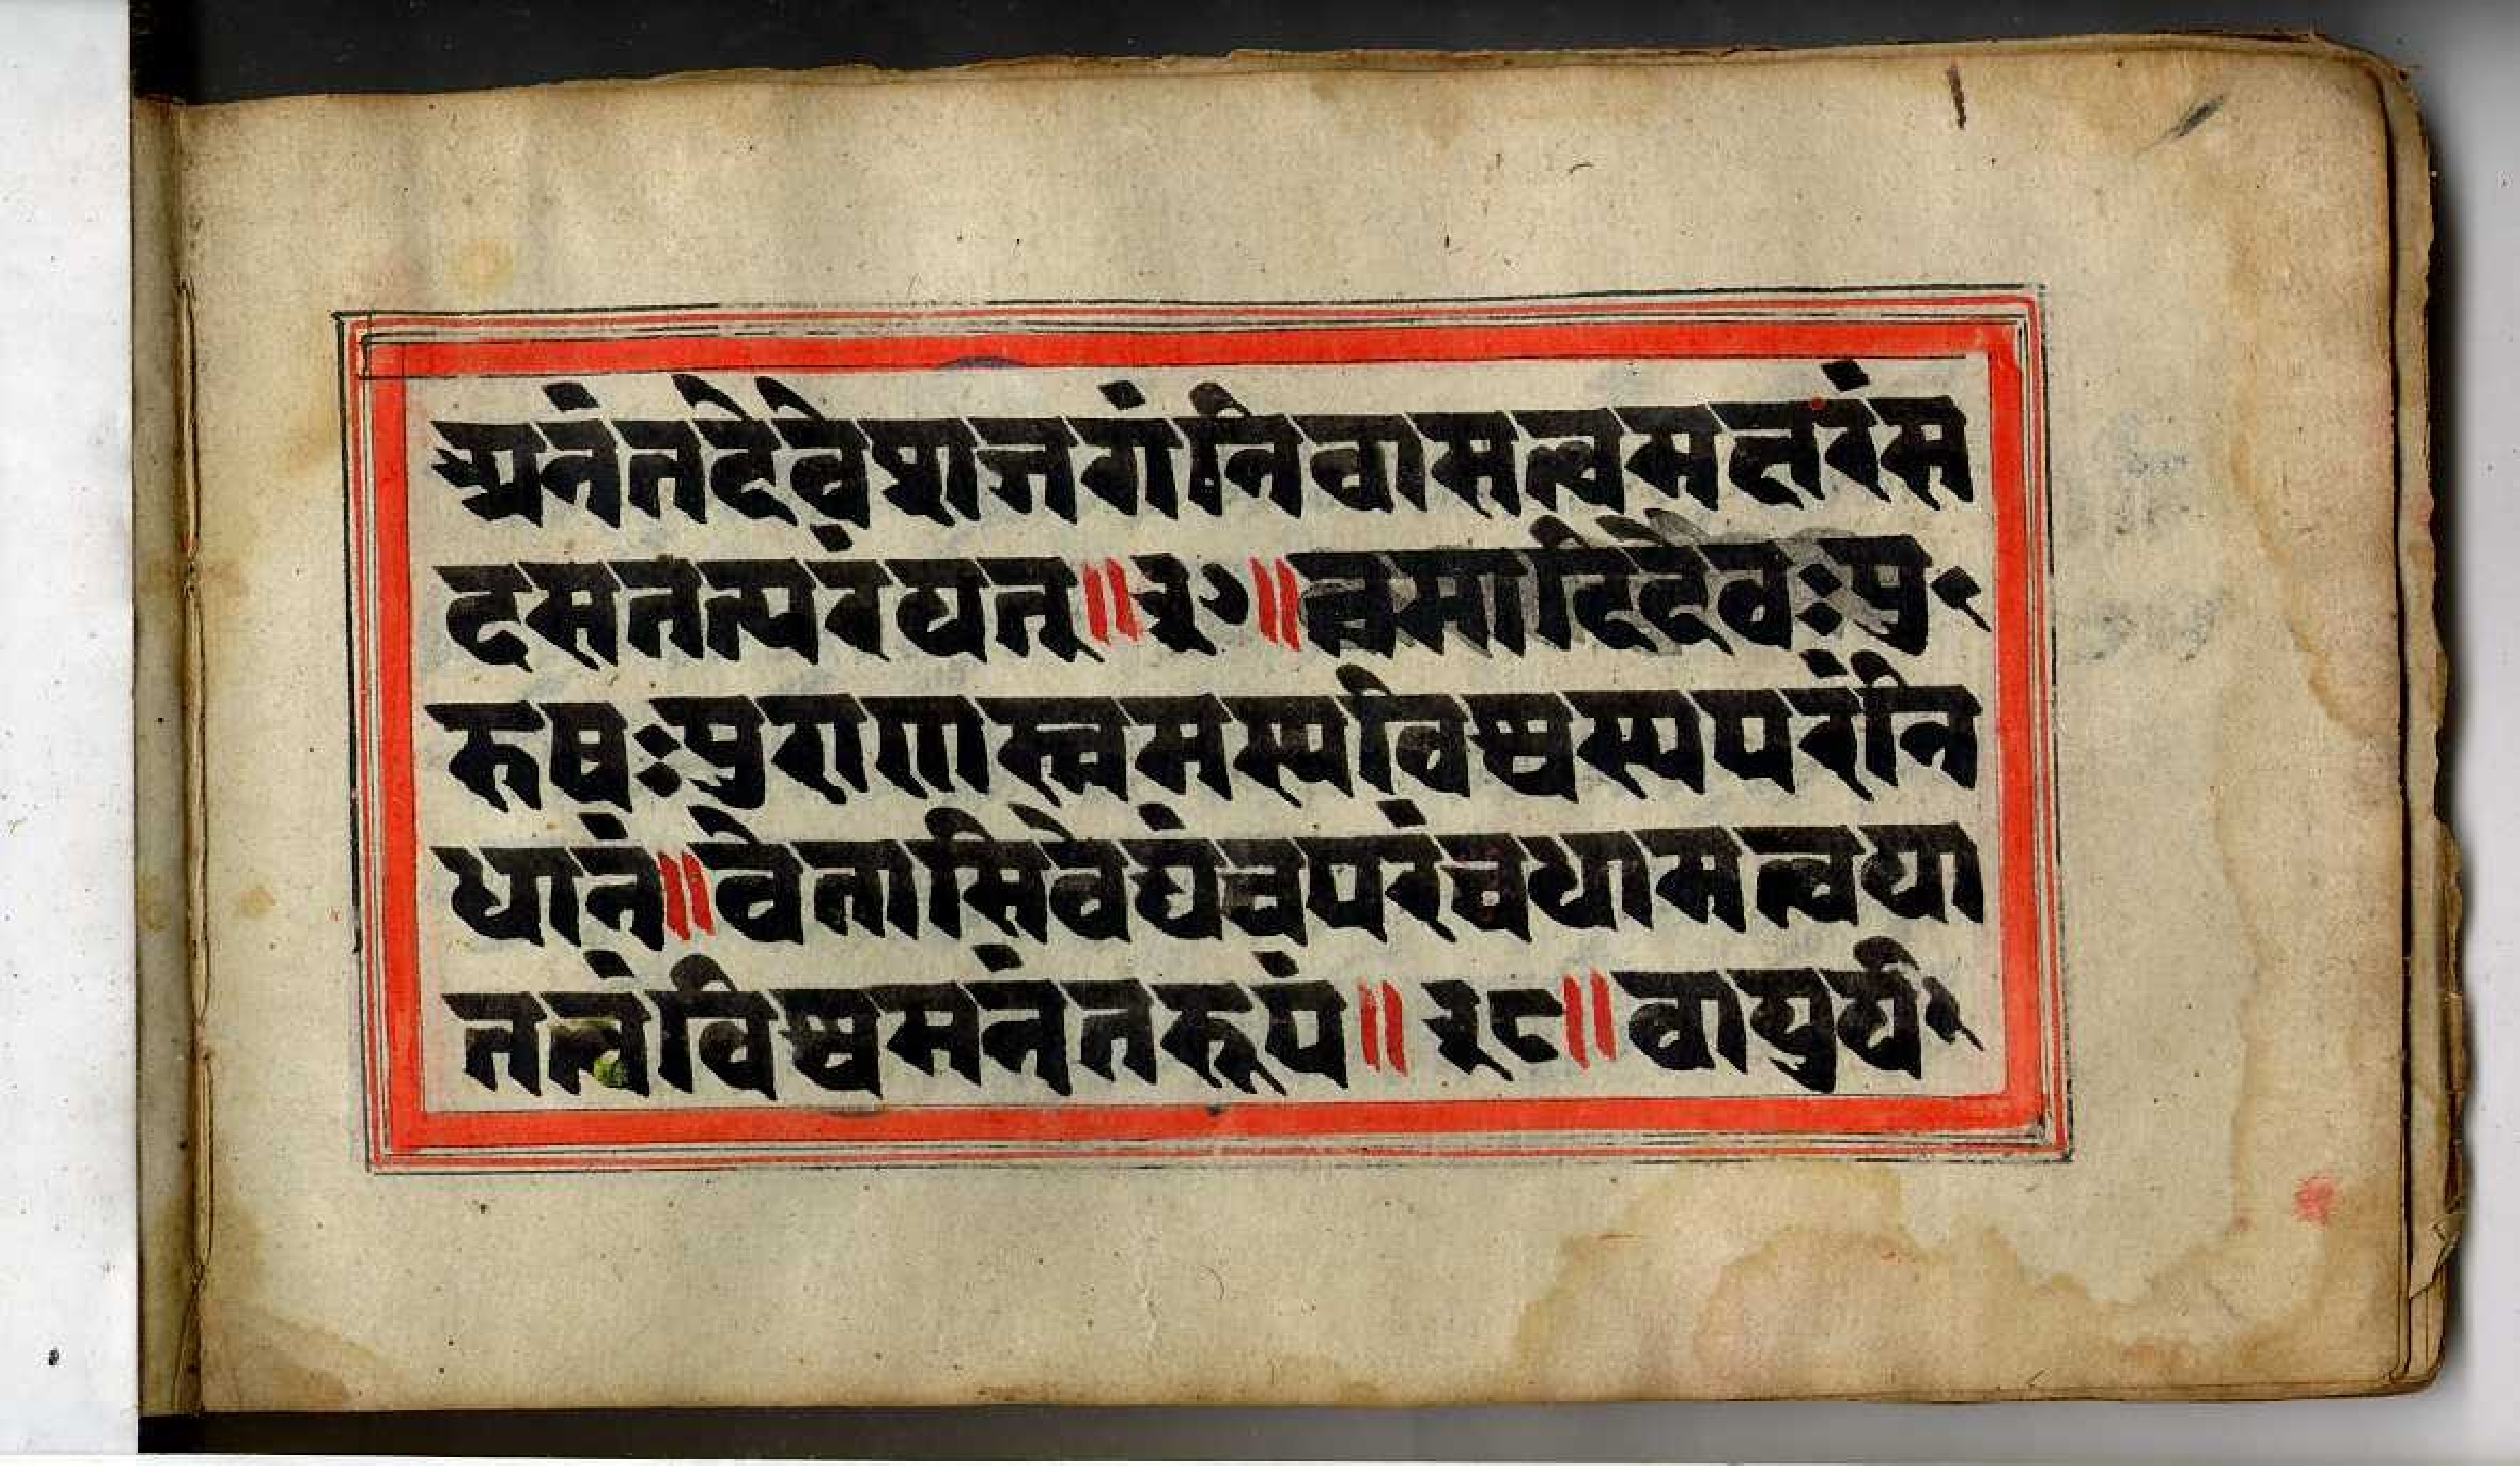 अनंतदेवेशजगंनिवासत्वमक्षरंस
दसततत्परंयत्॥३७॥त्वमादिदेवःपु
रुषःपुराणस्त्वमस्यविश्वस्यपरंनि
धानं॥वेत्तासिवेद्यंचपरंचधामत्वया
ततंविश्वमनंतरूप॥३८॥वायुर्य